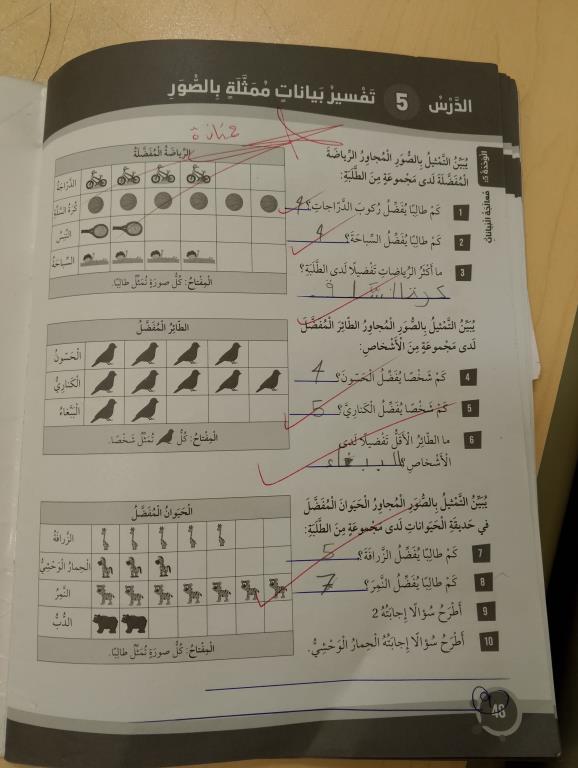 الدَّرْسُ 5 تَفْسيرُ بَياناتٍ مُمَثَّلَةٍ بِالصُّوَرِ
الْوَحْدَةُ
مُعالَجَةُ الْبَياناتِ
يُبَيِّنُ التَّمْثيلُ بِالصُّوَرِ الْمُجاوِرُ الرِّياضَةَ
الْمُفَضَّلَةَ لَدى مَجْموعَةٍ مِنَ الطَّلَبَةِ:
1 كَمْ طالِبًا يُفَضِّلُ رُكوبَ الدَّرّاجاتِ؟ 4
2 كَمْ طالِبًا يُفَضِّلُ السِّباحَةَ؟ 4
3 ما أَكْثَرُ الرِّياضاتِ تَفْضيلًا لَدى الطَّلَبَةِ؟
كرة السلة
الرِّياضَةُ الْمُفَضَّلَةُ
الدَّرّاجَةُ
كُرَةُ السَّلَّةِ
التِّنِسُ
السِّباحَةُ
الْمِفْتاحُ: كُلُّ صورَةٍ تُمَثِّلُ طالِبًا.
يُبَيِّنُ التَّمْثيلُ بِالصُّوَرِ الْمُجاوِرُ الطّائِرَ الْمُفَضَّلَ
لَدى مَجْموعَةٍ مِنَ الْأَشْخاصِ:
4 كَمْ شَخْصًا يُفَضِّلُ الْحَسّونَ؟ 4
5 كَمْ شَخْصًا يُفَضِّلُ الْكَنارِيَّ؟ 5
6 ما الطّائِرُ الْأَقَلُّ تَفْضيلًا لَدى
الْأَشْخاصِ؟ الببغاء
الطّائِرُ الْمُفَضَّلُ
الْحَسّونُ
الْكَنارِيُّ
الْبَبَّغاءُ
الْمِفْتاحُ: كُلُّ تُمَثِّلُ شَخْصًا.
يُبَيِّنُ التَّمْثيلُ بِالصُّوَرِ الْمُجاوِرُ الْحَيَوانَ الْمُفَضَّلَ
في حَديقَةِ الْحَيَواناتِ لَدى مَجْموعَةٍ مِنَ الطَّلَبَةِ:
7 كَمْ طالِبًا يُفَضِّلُ الزَّرافَةَ؟ 5
8 كَمْ طالِبًا يُفَضِّلُ النَّمِرَ؟ 7
9 أَطْرَحُ سُؤالًا إِجابَتُهُ 2
10 أَطْرَحُ سُؤالًا إِجابَتُهُ الْحِمارُ الْوَحْشِيُّ.
الْحَيَوانُ الْمُفَضَّلُ
الزَّرافَةُ
الْحِمارُ الْوَحْشِيُّ
النَّمِرُ
الدُّبُّ
الْمِفْتاحُ: كُلُّ صورَةٍ تُمَثِّلُ طالِبًا.
48